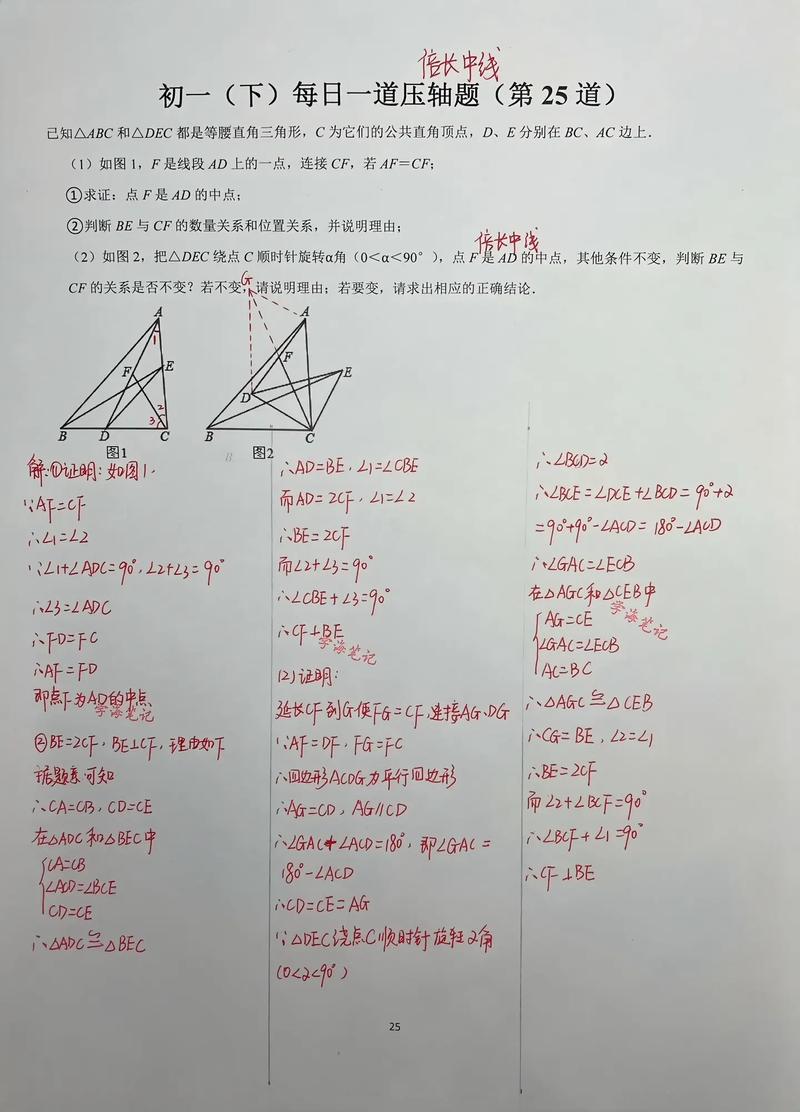 倍长中线
初一（下）每日一道压轴题（第 25 道）
已知△ABC 和△DEC 都是等腰直角三角形，C 为它们的公共直角顶点，D、E 分别在 BC、AC 边上．
（1）如图 1，F 是线段 AD 上的一点，连接 CF，若 AF＝CF；
①求证：点 F 是 AD 的中点；
②判断 BE 与 CF 的数量关系和位置关系，并说明理由；
倍长中线
（2）如图 2，把△DEC 绕点 C 顺时针旋转α角（0＜α＜90°），点 F 是 AD 的中点，其他条件不变，判断 BE 与
CF 的关系是否不变？若不变，请说明理由；若要变，请求出相应的正确结论．
A
1
F
E
2
3
B
D
C
图1
G
A
F
E
D
B
C
图2
解:①证明：如图1.
∵AF=CF
∴∠1=∠2
∵∠1+∠ADC=90°,∠2+∠3=90°
∴∠3=∠ADC
∴FD=FC
∴AF=FD
即点F为AD的中点
学海笔记
②BE=2CF, BE⊥CF, 理由如下
据题意可知
∴CA=CB, CD=CE
在△ADC和△BEC中
CA=CB
∠ACD=∠BCE
CD=CE
∴△ADC≌△BEC
∴AD=BE, ∠1=∠CBE
而AD=2CF, ∠1=∠2
∴BE=2CF
而∠2+∠3=90°
∴∠CBE+∠3=90°
∴CF⊥BE
学海笔记
(2)证明:
延长CF到G使FG=CF,连接AG、DG
∵AF=DF, FG=FC
∴四边形ACDG为平行四边形
∴AG=CD, AG∥CD
∴∠GAC+∠ACD=180°, 即∠GAC=
180°-∠ACD
∴CD=CE=AG
∵△DEC绕点C顺时针旋转α角
(0<α<90°)
∴∠BCD=α
∴∠BCE=∠DCE+∠BCD=90°+α
=90°+90°-∠ACD=180°-∠ACD
∴∠GAC=∠ECB
在△AGC和△CEB中
学海笔记
AG=CE
∠GAC=∠ECB
AC=BC
∴△AGC≌△CEB
∴CG=BE, ∠2=∠1
∴BE=2CF
而∠2+∠BCF=90°
∴∠BCF+∠1=90°
∴CF⊥BE
25